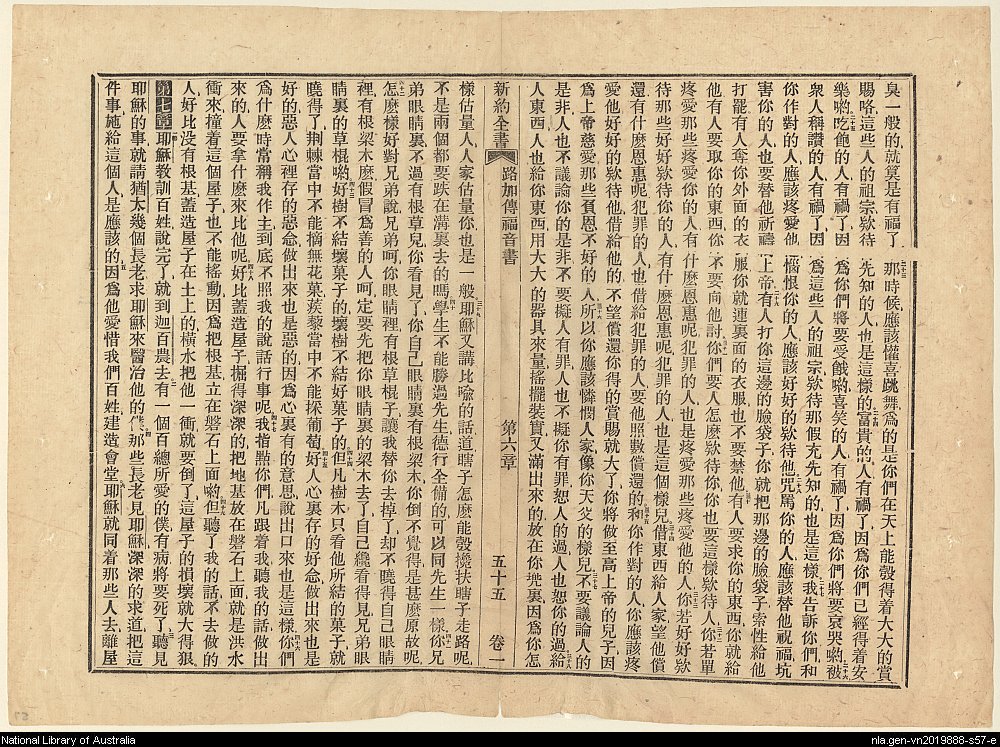 臭一般的就算是有福了 那時候應該懽喜跳舞爲的是你們在天上能彀得着大大的賞
賜咯這些人的祖宗欵待 先知的人也是這樣的富貴的人有禍了因爲你們已經得着安
樂喲吃飽的人有禍了因 爲你們將要受餓喲喜笑的人有禍了因爲你們將要哀哭喲被
衆人稱讚的人有禍了因 爲這些人的祖宗欵待那假充先知的也是這樣我告訴你們和
你作對的人應該疼愛他 惱恨你的人應該好好的欵待他咒罵你的人應該替他祝福坑
害你的人也要替他祈禱 上帝有人打你這邊的臉袋子你就把那邊的臉袋子索性給他
打罷有人奪你外面的衣 服你就連裏面的衣服也不要禁他有人要求你的東西你就給
他有人要取你的東西你不要向他討你們要人怎麽欵待你你也要這樣欵待人你若單
疼愛那些疼愛你的人有什麽恩惠呢犯罪的人也是疼愛那些疼愛他的人你若好好欵
待那些好好欵待你的人有什麽恩惠呢犯罪的人也是這個樣兒借東西給人家望他償
還有什麽恩惠呢犯罪的人也借給犯罪的人要他照數償還的和你作對的人你應該疼
愛他好好的欵待他借給他的不望償還你得的賞賜就大了你將做至高上帝的兒子因
爲上帝慈愛那些負恩不好的人所以你應該憐憫人家像你天父的樣兒不要議論人的
是非人也不議論你的是非不要擬人有罪人也不擬你有罪恕人的過人也恕你的過給
人東西人也給你東西用大大的器具來量搖擺裝實又滿出來的放在你兜裏因爲你怎
新約全書 路加傳福音書 第六章 五十五 卷一
樣估量人人家估量你也是一般耶穌又講比喩的話道瞎子怎麽能彀攙扶瞎子走路呢
不是兩個都要跌在溝裏去的嗎學生不能勝過先生德行全備的可以同先生一樣你兄
弟眼睛裏不過有根草兒你看見了你自己眼睛裏有根梁木你倒不覺得是甚麽原故呢
怎麽樣好對兄弟說兄弟呵你眼睛裡有根草棍子讓我替你去掉了却不曉得自己眼睛
裡有根梁木麽假冒爲善的人呵定要先把你眼睛裏的梁木去了自己纔看得見兄弟眼
睛裏的草棍喲好樹不結壞菓子的壞樹不結好菓子的但凡樹木只看他所結的菓子就
曉得了荆棘當中不能摘無花菓蒺藜當中不能採葡萄好人心裏存的好念做出來也是
好的惡人心裡存的惡念做出來也是惡的因爲心裏有的意思說出口來也是這樣你們
爲什麽時常稱我作主到底不照我的說話行事呢我指點你們凡跟着我聽我的話做出
來的人要拿什麽來比他呢好比蓋造屋子掘得深深的把地基放在磐石上面就是洪水
衝來撞着這個屋子也不能搖動因爲把根基立在磐石上面喲但聽了我的話不去做的
人好比没有根基蓋造屋子在土上的橫水把他一衝就要倒了這屋子的損壞就大得狠
第七章 耶穌教訓百姓說完了就到迦百農去有一個百總所愛的僕人有病將要死了聽見
耶穌的事就請猶太幾個長老求耶穌來醫冶他的僕人那些長老見耶穌深深的求道把這
件事施給這個人是應該的因爲他愛惜我們百姓建造會堂耶穌就同着那些人去離屋